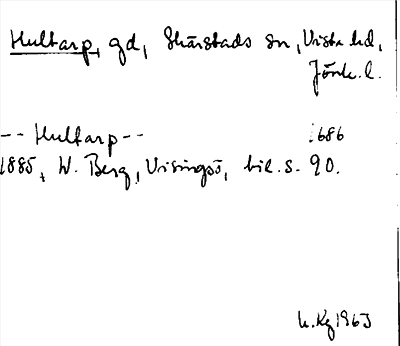 Hultarp, gd, Skärstads sn, Vista hd,
Jönk. l.
-- Hultarp --  1686
1885, W. Berg, Visingsö, bil. s. 90.
L. Kg 1963